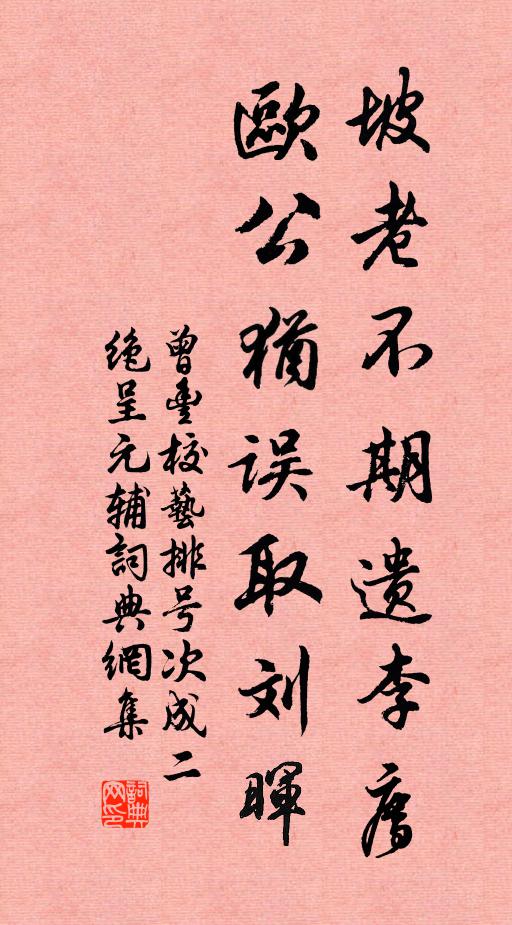 坡老不期遗李廌
歐公猶误取刘暉
曾豊校藝排号次成二
绝呈元辅詞典網集
詞典网印